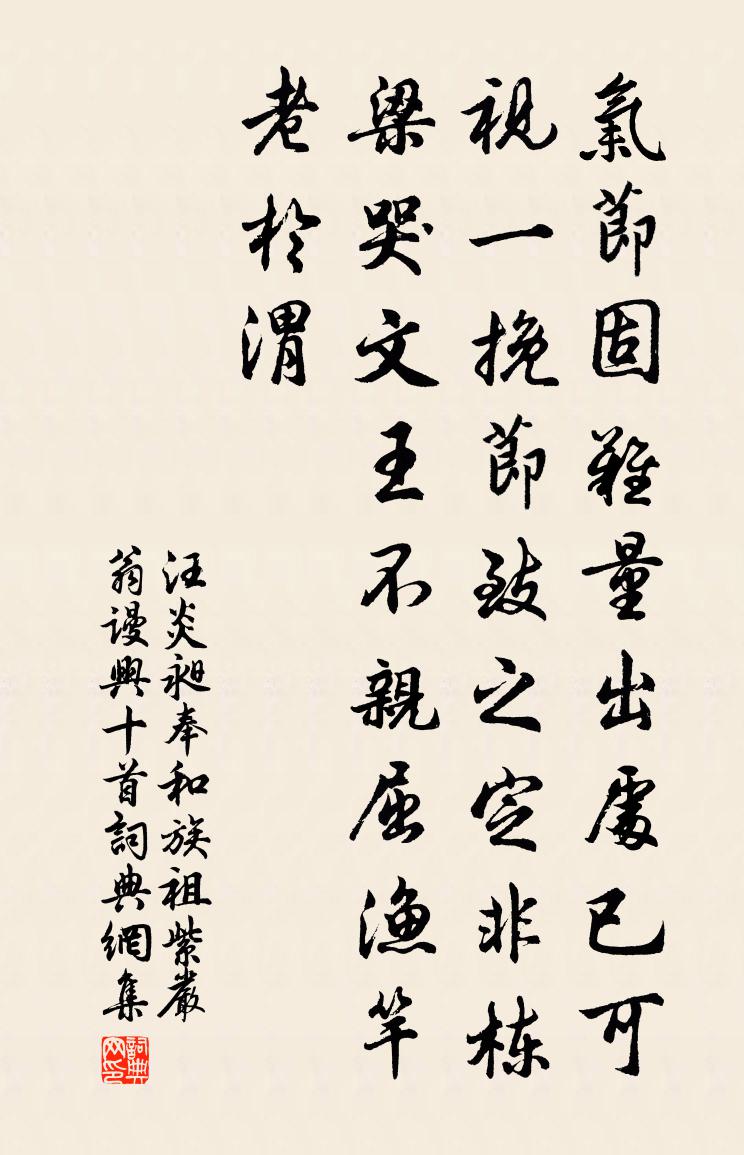 氣節固難量出處已可
視一挽節致之定非棟
梁哭文王不親屈漁竿
老於渭
汪炎昶奉和族祖紫嚴
翁謾興十首詞典網集
詞典网印